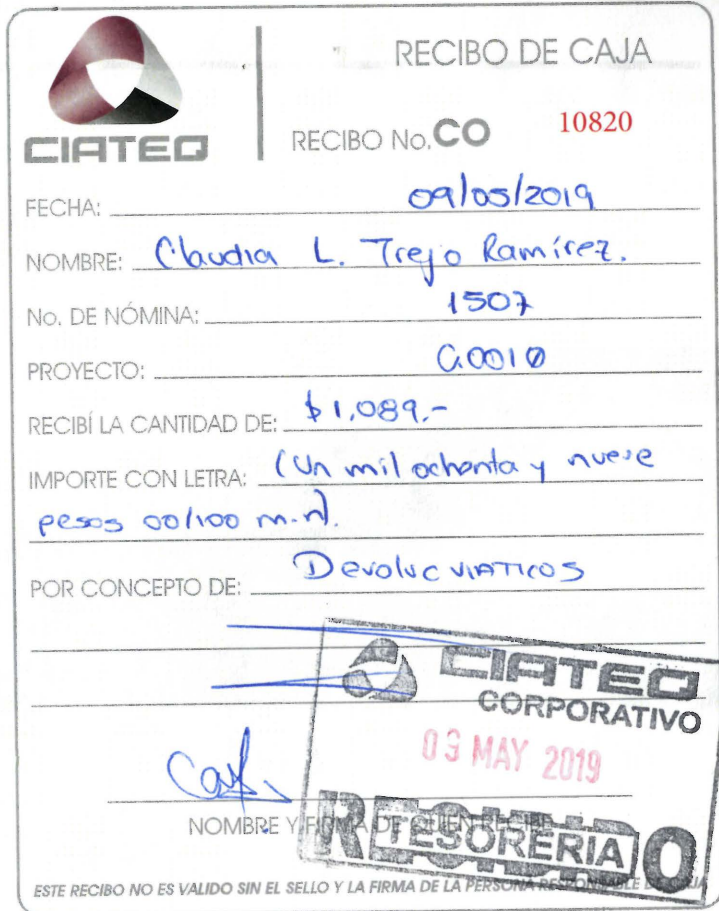 CIATEQ
RECIBO DE CAJA
RECIBO No. CO 10820
FECHA: 09/05/2019
NOMBRE: Claudia L. Trejo Ramírez.
No. DE NÓMINA: 1507
PROYECTO: G0010
RECIBÍ LA CANTIDAD DE: $1,089.-
IMPORTE CON LETRA: (Un mil ochenta y nueve
pesos 00/100 m.n).
POR CONCEPTO DE: Devoluc VIATICOS
CIATEQ
CORPORATIVO
09 MAY 2019
NOMBRE Y FIRMA DE QUIEN RECIBE
RECIBIDO
TESORERIA
ESTE RECIBO NO ES VALIDO SIN EL SELLO Y LA FIRMA DE LA PERSONA RESPONSABLE DE CAJA